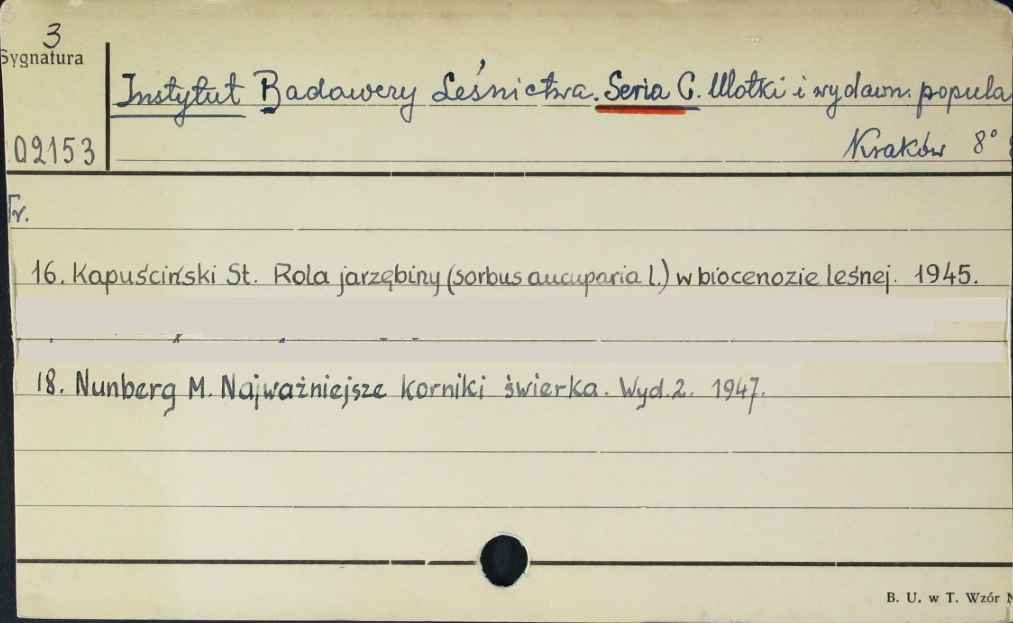 3
Sygnatura
Instytut Badawczy Leśnictwa. Seria C. Ulotki i wydawn. popula
02153
Kraków 8°
Tr.
16. Kapuściński St. Rola jarzębiny (sorbus aucuparia l.) w biocenozie leśnej. 1945.
18. Nunberg M. Najważniejsze korniki świerka. Wyd. 2. 1947.
B. U. w T. Wzór N